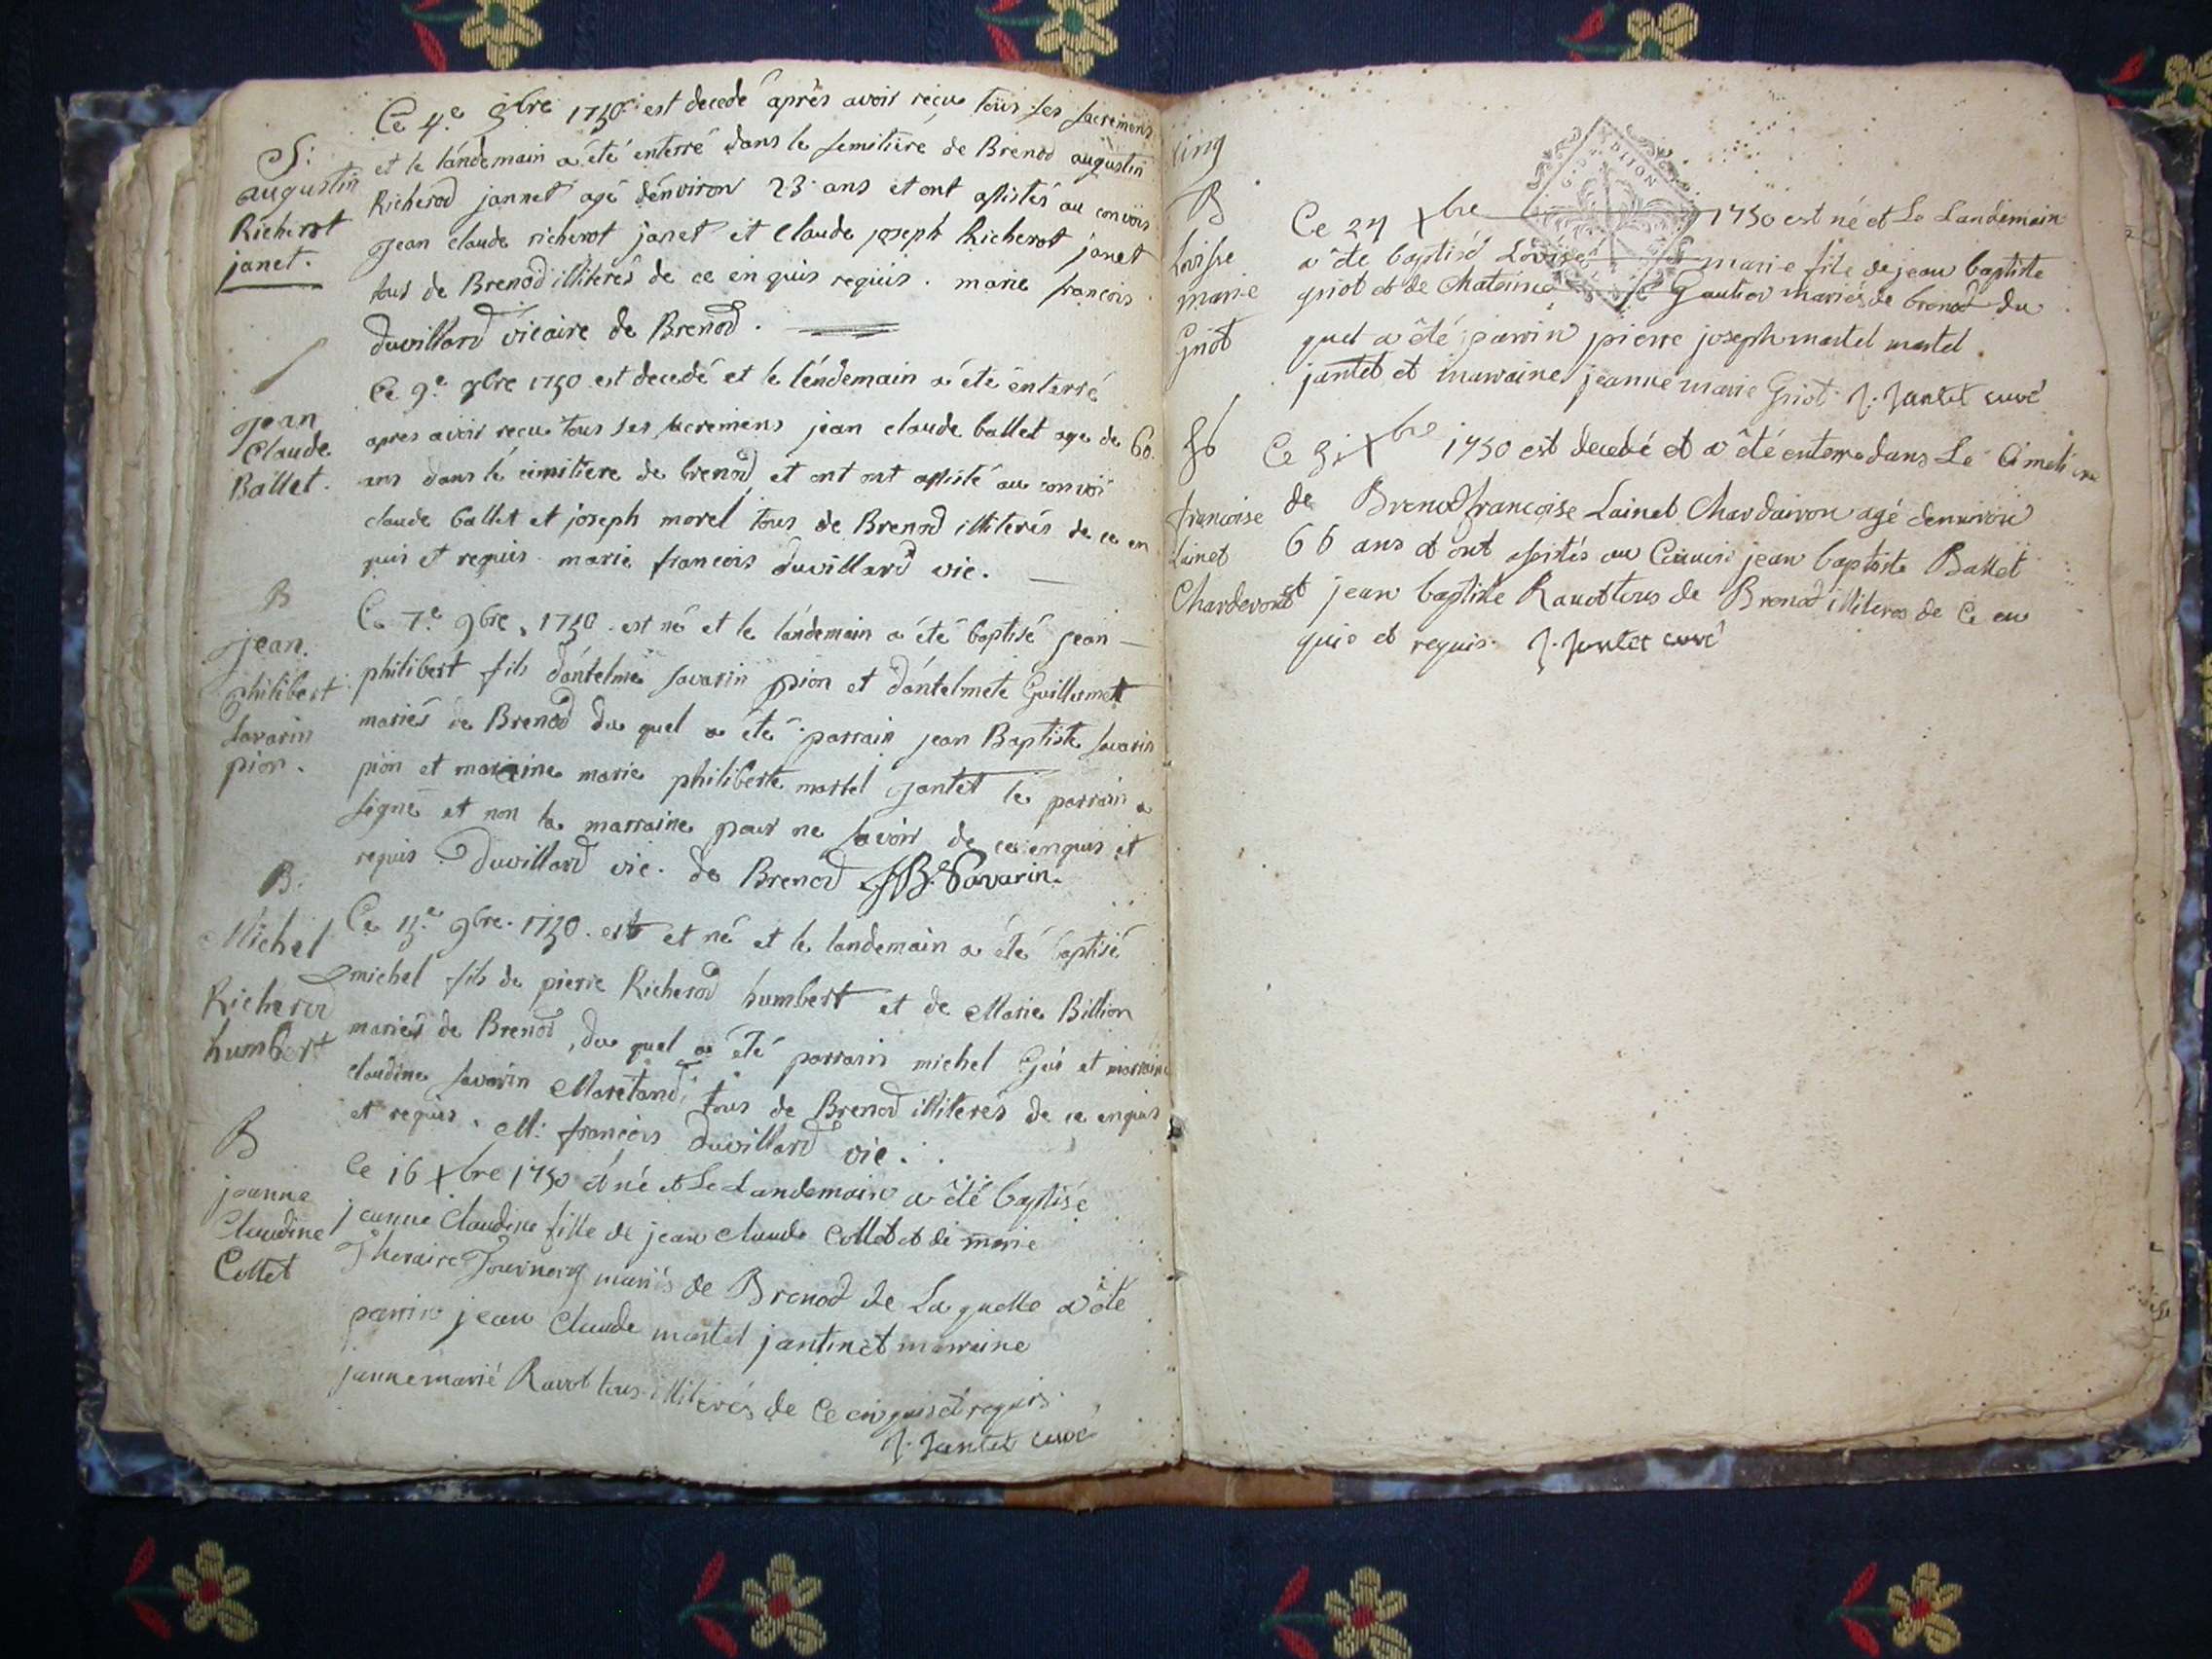 Ce 4.e 9bre 1750. est decedé après avoir reçu tous ses sacremens
S:
augustin
Richerot
janet.
et le landemain a été enterré dans le semitiere de Brenod augustin
Richerod jannet agé dénviron 23 ans et ont assistés au convois
jean claude richerot janet et Claude joseph Richerot janet
tous de Brenod illiterés de ce enquis requis. marie francois
duvillard vicaire de Brenod.
jean
Claude
Ballet.
Ce 9.e 9bre 1750 est decedé et le lendemain a été enterré
apres avoir recu tous ses sacremens jean claude ballet age de 60
ans dans le cimitiere de brenod et ont ont assisté au convoi
claude ballet et joseph morel tous de Brenod illiterés de ce en
quis et requis. marie francois duvillard vic.
B
jean.
philibert
Savarin
pion.
Ce 7.e 9bre, 1750. est né et le landemain a été baptisé jean
philibert fils dántelme savarin pion et dántelmete Guillermet
mariés de Brenod du quel a été parrain jean Baptiste savarin
pion et maraine marie philiberte martel jantet le parrain a
signé et non la marraine pour ne savoir de ce enquis et
requis. Duvillard vic. de Brenod JB. Savarin.
B.
Michel
Richerod
humbert
Ce 9bre. 1750. est et né et le landemain a été baptisé
michel fils de pierre Richerod humbert et de Marie Billion
mariés de Brenod, du quel a été parrain michel Gui et marraine
claudine savarin Maretand, tous de Brenod illiterés de ce enquis
et requis. M: françois Duvillard vic.
B
jeanne
Claudine
Collet
Ce 16 Xbre 1750 et né et Le Landemain a été baptisé
jeanne Claudine fille de jean claude Collet et de marie
mariés de Brenod de Laquelle a été
parrin jean Claude martel jantin et marraine
janne marie Ravot tous illiterés de Ce enquis et requis.
J. Jantet curé
cinq
G. D. DIJON
B
Louisse
marie
Griot
Ce 24 Xbre 1750 est né et Le Landemain
a été baptisé Louise marie file de jean baptiste
griot et de Gautier mariés de brenod du
quel a été parrin pierre joseph martel martel
jantet et marraine jeanne marie Griot. J. Jantet curé
francoise
Lainet
Ce Xbre 1750 est decedé et a été enterré dans Le Cimetiere
de Brenod francoise Lainet Chardairon agé denviron
66 ans et ont assistés au jean baptiste Ballet
et jean baptiste Ravot tous de Brenod illiteres de Ce en
quis et requis. J. Jantet curé